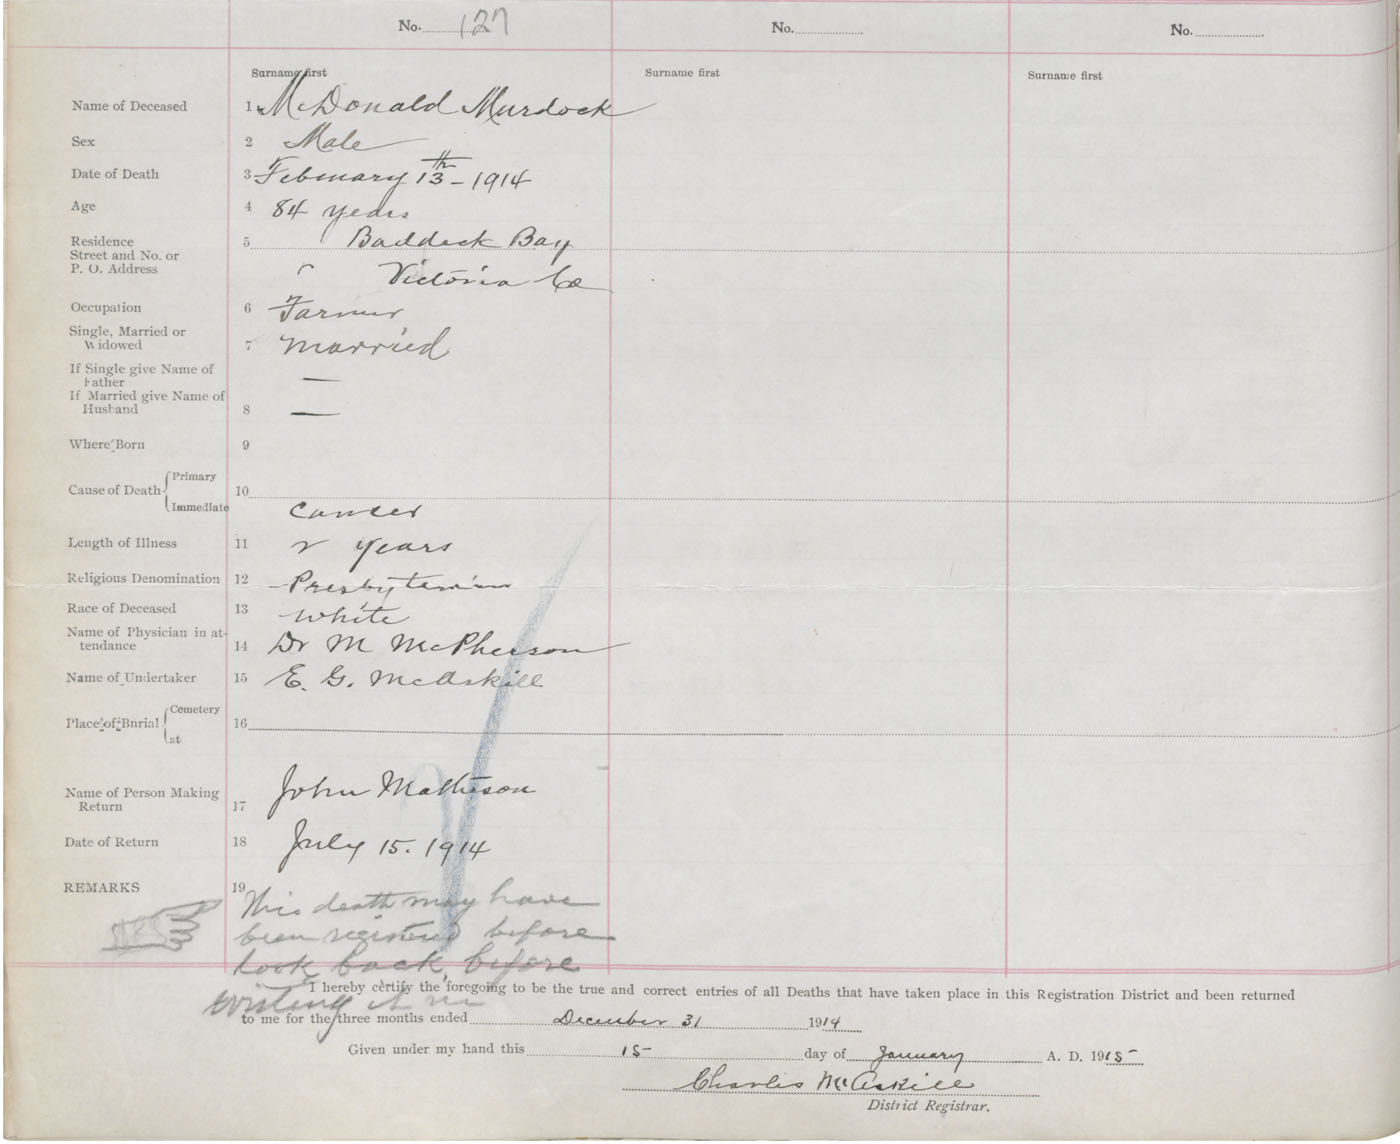 No. 127 No. No.
Surname first Surname first Surname first
Name of Deceased 1 McDonald Murdock
Sex 2 Male
Date of Death 3 February 13th - 1914
Age 4 84 years
Residence 5 Baddeck Bay
Street and No. or
P. O. Address " Victoria Co
Occupation 6 Farmer
Single, Married or
Widowed 7 married
If Single give Name of
Father —
If Married give Name of
Husband 8 —
Where Born 9
Primary
Cause of Death 10
Immediate cancer
Length of Illness 11 2 years
Religious Denomination 12 Presbyterian
Race of Deceased 13 White
Name of Physician in at-
tendance 14 Dr M McPherson
Name of Undertaker 15 E. G. McAskill
Cemetery
Place of Burial 16
at
Name of Person Making
Return 17 John Matheson
Date of Return 18 July 15. 1914
REMARKS 19 This death may have
been registered before
look back before
writing it in
I hereby certify the foregoing to be the true and correct entries of all Deaths that have taken place in this Registration District and been returned
to me for the three months ended December 31 1914
Given under my hand this 15 day of January A. D. 1915
Charles McAskill
District Registrar.